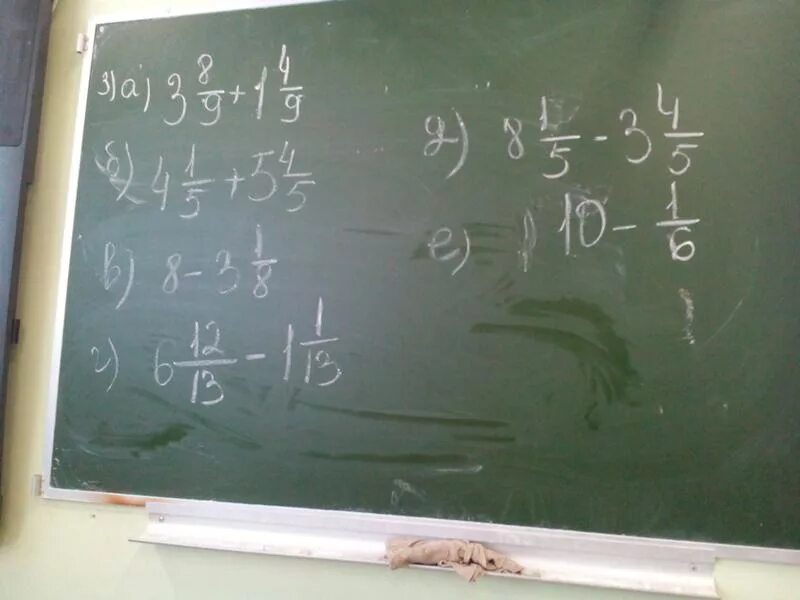 3) а) 3 8/9 + 1 4/9
б) 4 1/5 + 5 4/5
в) 8 - 3 1/8
г) 6 12/13 - 1 1/13
д) 8 1/5 - 3 4/5
е) 10 - 1/6